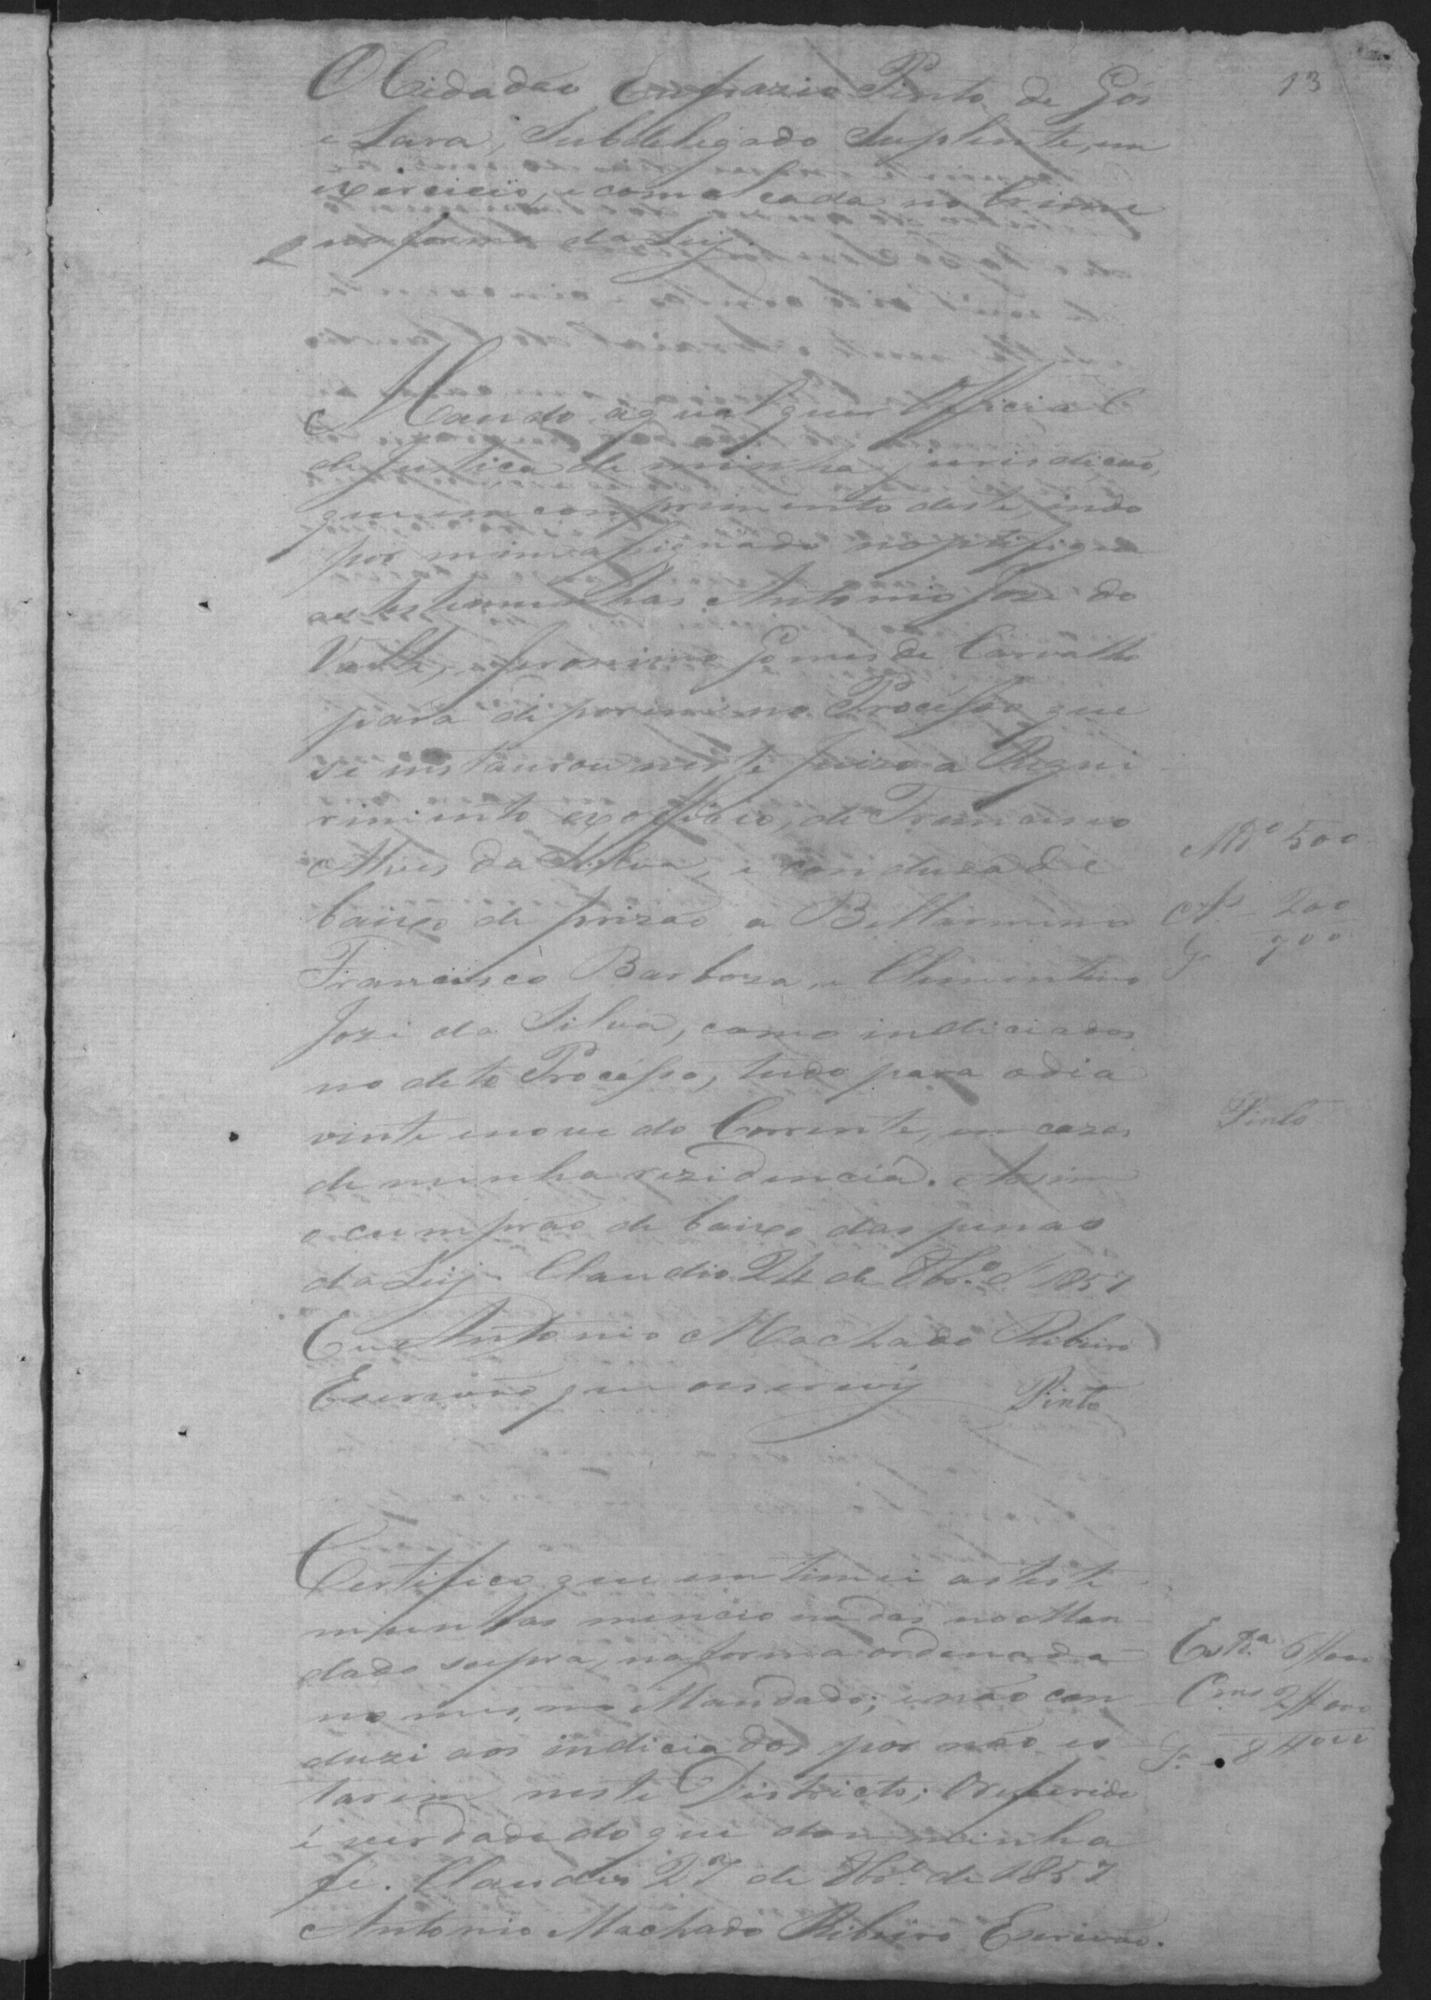 13
O Cidadão Eufrazio Pinto de Gós
e Lara, Subdelegado Suplente, em
exercicio, e com alcada no Crime
na forma da Ley.
Mando a qual quer Official
de Justica de minha jurisdicão,
que em comprimento deste, indo
por mim assignado notifique
as testemunhas Antonio Joze do
Valle, e Jeronimo Gomes de Carvalho
para diporem no Processo que
se instaurou neste Juizo a Requi
rimento exofficio, de Francisco
Alves da Silva, e conduza de
baixo de prizão a Bellarmino
Francisco Barboza, e Clementino
Jozé da Silva, como indiciados
no dito Processo, tudo para o dia
vinte e nove do Corrente, em cazas
de minha rezidencia. Assim
o cumprão de baixo das penas
da Ley. Claudio 24 de 8br.º d' 1857
Eu Antonio Machado Ribeiro
Escrivão que o escrevÿ Pinto
M.º 500
200
700
Pinto
Certifico que emtimei as teste
munhas mencionadas no Man
dado supra, na forma ordenada
no mesmo Mandado; e não con
duzi aos indiciados por não es
tarem neste Districto; O referido
é verdade do que dou minha
fé. Claudio 27 de 8br.º de 1857
Antonio Machado Ribeiro Escrivão.
Est.ª 6#000
2#000
8#000